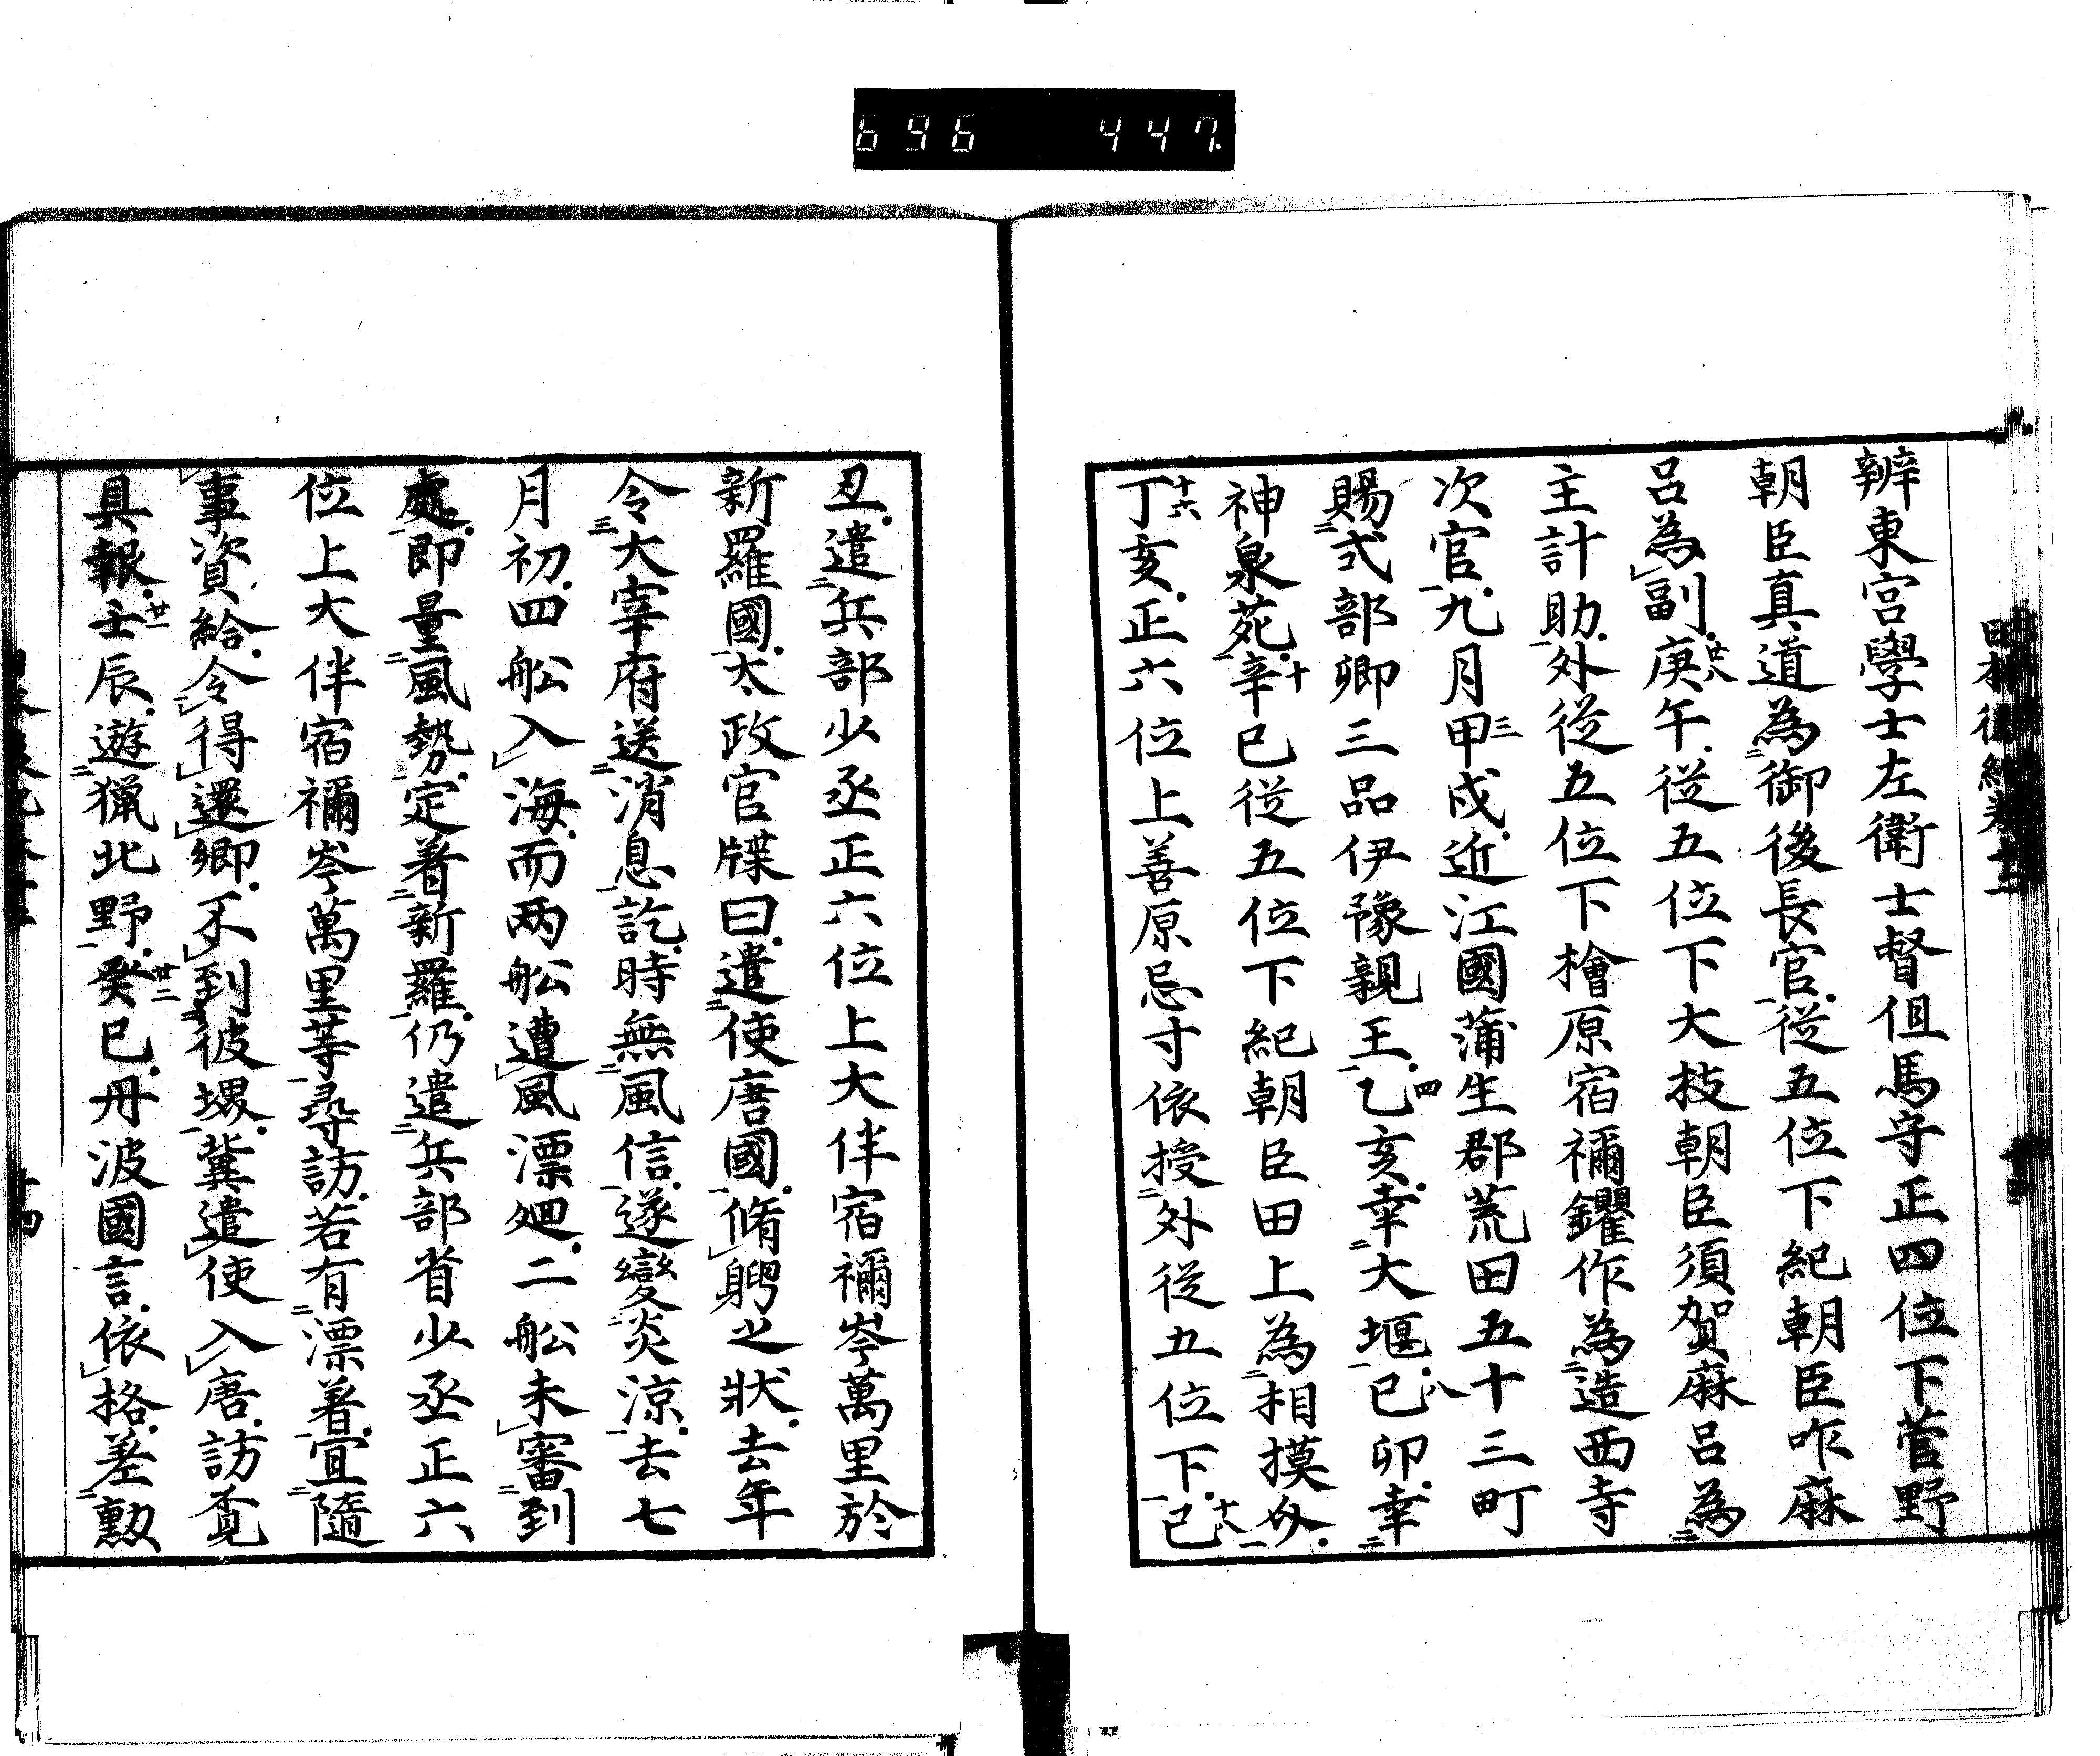 696 447.
辨東宮學士左衛士督伹馬守正四位下菅野
朝臣真道為御後長官從五位下紀朝臣咋麻
呂為副庚午從五位下大枝朝臣須賀麻呂為
主計助外從五位下檜原宿禰鑺作為造西寺
次官九月甲戌近江國蒲生郡荒田五十三町
賜式部卿三品伊豫親王乙亥幸大堰已卯幸
神泉苑辛巳從五位下紀朝臣田上為相摸
丁亥正六位上善原忌寸依授外從五位下已
丑遣兵部少丞正六位上大伴宿禰岑萬里於
新羅國太政官牒曰遣使唐國脩聘之狀去年
令大宰府送消息訖時無風信遂變炎涼去七
月初四舩入海而两舩遭風漂廻二舩未審到
處即量風勢定着新羅仍遣兵部省少丞正六
位上大伴宿禰岑萬里等尋訪若有漂着宜隨
事資給令得還鄉不到彼堺冀遣使入唐訪覓
具報壬辰遊獵北野癸巳丹波國言依格差勲